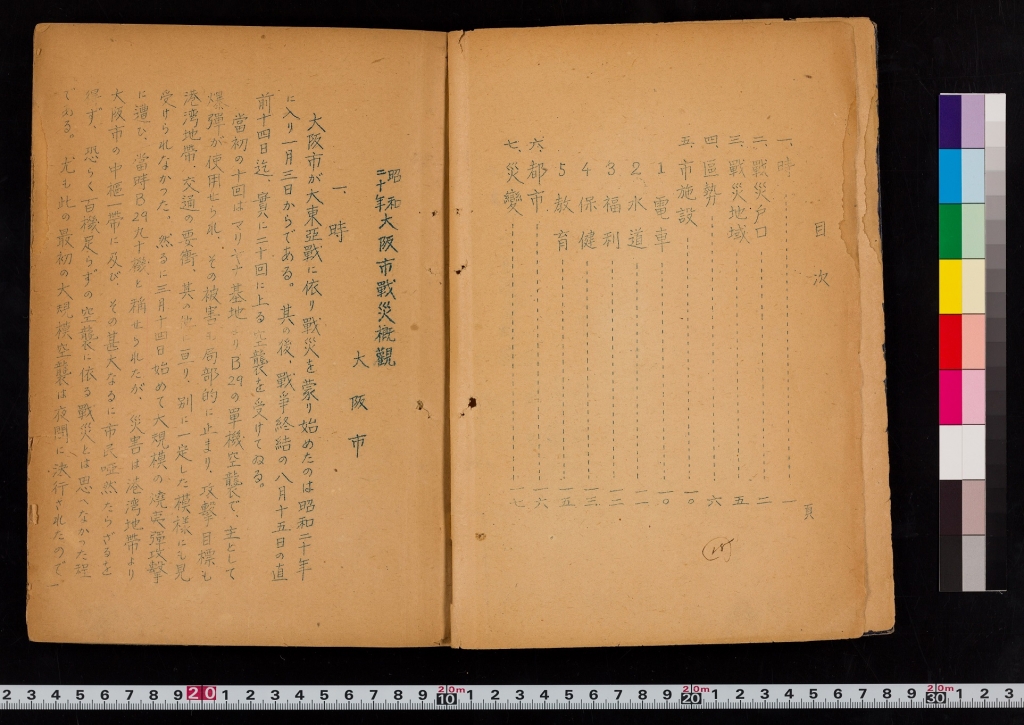 目次
頁
一、時 一
二、戰災戸口 二
三、戰災地域 五
四、區勢 六
五、市施設 一〇
1 電車 一〇
2 水道 一一
3 福利 一二
4 保健 一三
5 教育 一五
六、都市 一六
七、災變 一七
昭和二十年大阪市戰災概觀
大阪市
一、時
大阪市が大東亞戰に依り戰災を蒙り始めたのは昭和二十年
に入り一月三日からである。其の後、戰爭終結の八月十五日の直
前十四日迄、實に二十回に上る空襲を受けてゐる。
當初の十回はマリヤナ基地よりB29の單機空襲で、主として
爆彈が使用せられ、その被害も局部的に止まり、攻擊目標も
港湾地帶、交通の要衝、其の他に亘り、別に一定した模樣にも見
受けられなかつた。然るに三月十四日始めて大規模の燒夷彈攻擊
に遭ひ、當時B29九十機と稱せられたが、災害は港湾地帶より
大阪市の中樞一帶に及び、その甚大なるに市民啞然たらざるを
得ず、恐らく百機足らずの空襲に依る戰災とは思へなかつた程
である。尤も此の最初の大規模空襲は夜間に決行されたので、
2 3 4 5 6 7 8 9 20 1 2 3 4 5 6 7 8 9 10 1 2 3 4 5 6 7 8 9 20 1 2 3 4 5 6 7 8 9 30 1 2 3